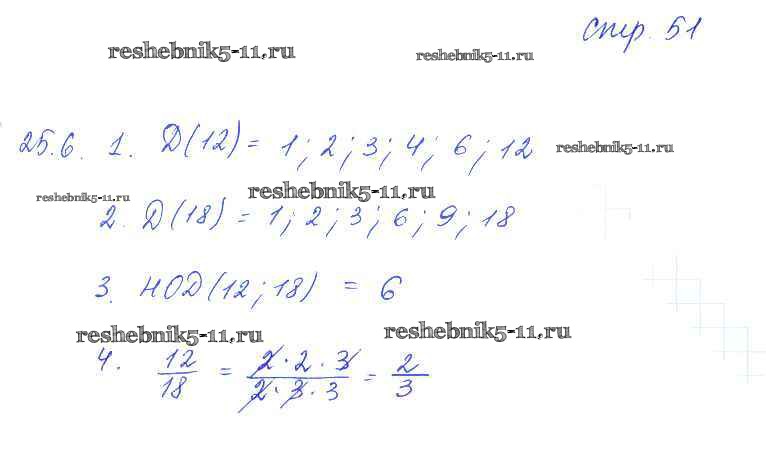 стр. 51
reshebnik5-11.ru
reshebnik5-11.ru
25.6. 1. D(12) = 1; 2; 3; 4; 6; 12
reshebnik5-11.ru
reshebnik5-11.ru
reshebnik5-11.ru
2. D(18) = 1; 2; 3; 6; 9; 18
3. НОD(12; 18) = 6
reshebnik5-11.ru
reshebnik5-11.ru
4. 12/18 = 2·2·3/2·3·3 = 2/3